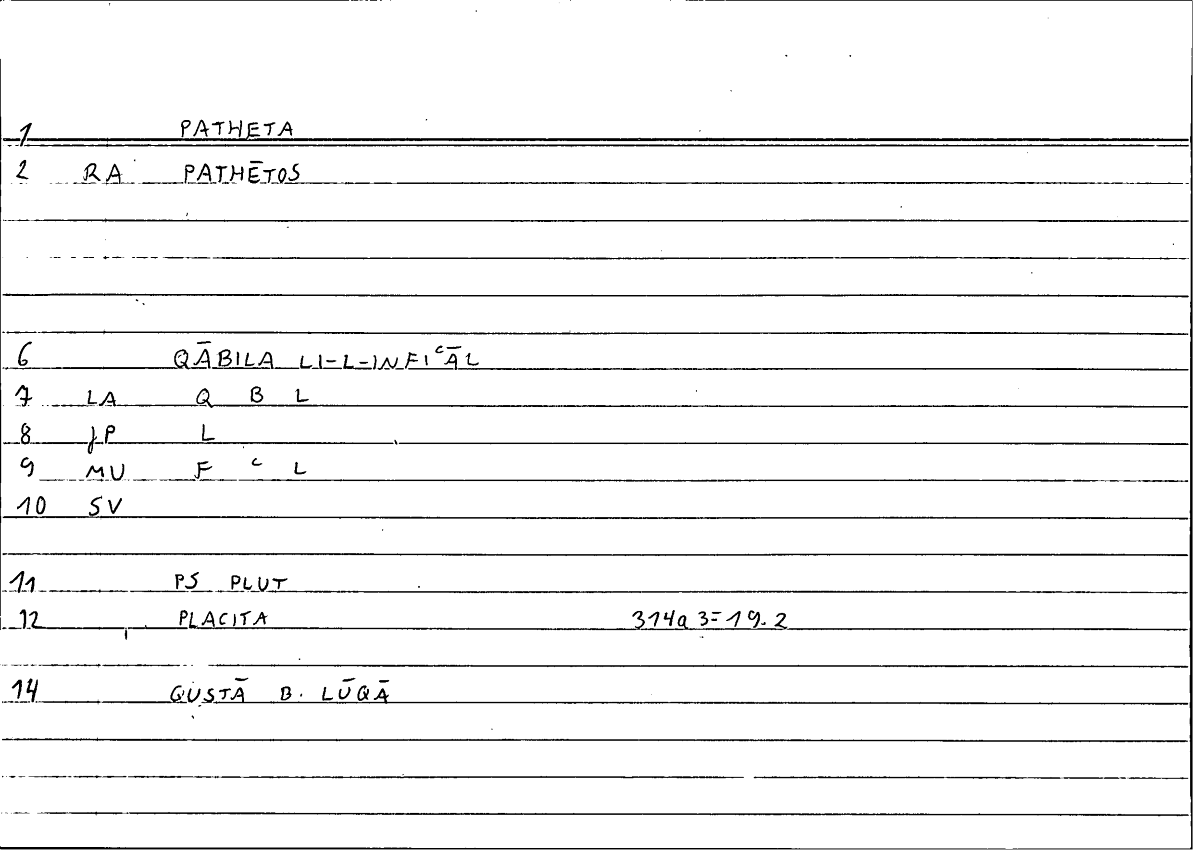 1 PATHETA
2 RA PATHĒTOS
6 QĀBILA LI-L-INFIᶜĀL
7 LA Q B L
8 JP L
9 MU F ᶜ L
10 SV
11 PS PLUT
12 PLACITA 314a 3=19.2
14 QUSṬĀ B. LŪQĀ